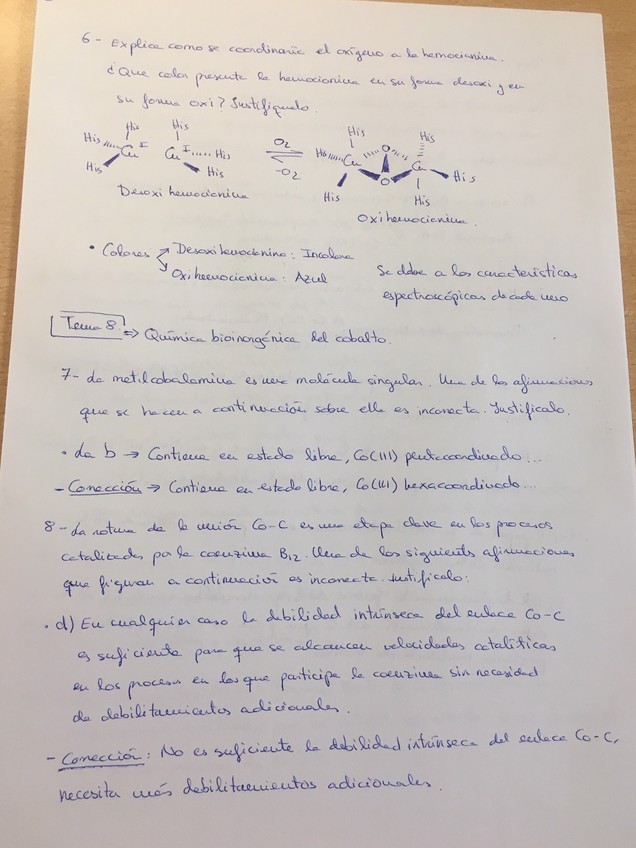 6- Explica como se coordinaría el oxígeno a la hemocianina.
¿Que color presenta la hemocianina en su forma desoxi y en
su forma oxi? Justifíquelo.
His His His His
His Cu I Cu I His O2 His Cu O Cu His
His His -O2 O
His His
Desoxi hemocianina
Oxihemocianina.
• Colores Desoxihemocianina: Incolora
Oxihemocianina: Azul
Se debe a las características
espectroscópicas de cada uno
Tema 8 => Química bioinorgánica del cobalto.
7- La metilcobalamina es una molécula singular. Una de las afirmaciones
que se hacen a continuación sobre ella es incorrecta. Justifícalo.
• La b → Contiene en estado libre, Co(III) pentacoordinado...
- Corrección → Contiene en estado libre, Co(III) hexacoordinado...
8- La rotura de la unión Co-C es una etapa clave en los procesos
catalizados por la coenzima B12. Una de las siguientes afirmaciones
que figuran a continuación es incorrecta. Justifícalo:
• d) En cualquier caso la debilidad intrínseca del enlace Co-C
es suficiente para que se alcancen velocidades catalíticas
en los procesos en los que participe la coenzima sin necesidad
de debilitamientos adicionales.
- Corrección: No es suficiente la debilidad intrínseca del enlace Co-C,
necesita más debilitamientos adicionales.